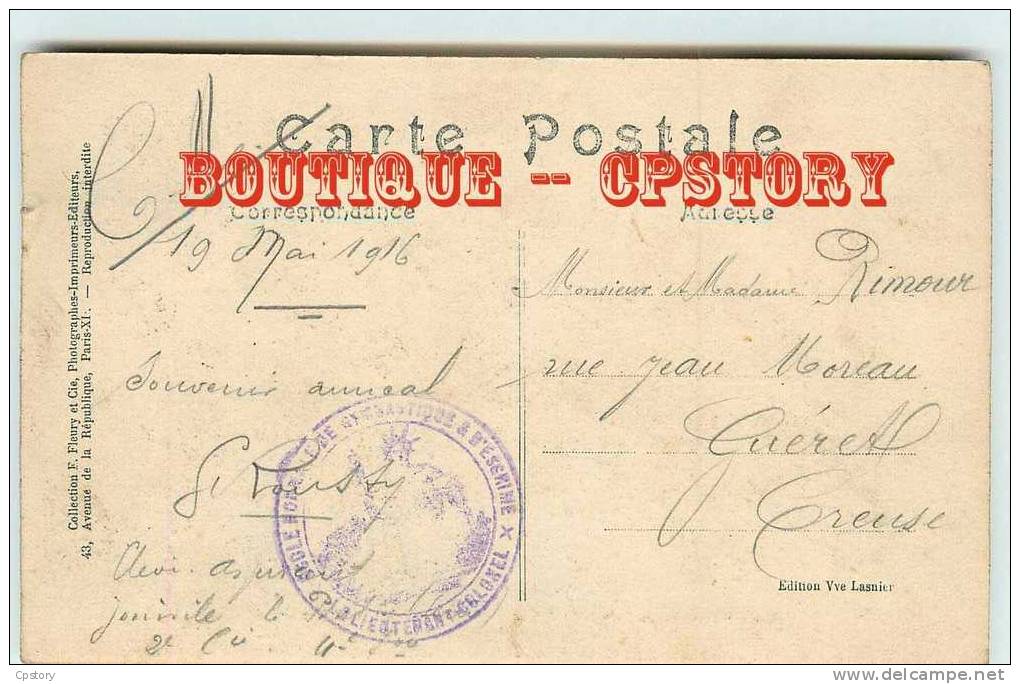 Carte Postale
BOUTIQUE -- CPSTORY
Correspondance
Adresse
19 Mai 1916
Souvenir amical
joinville le
2e Cie
Monsieur et Madame Rimour
rue Jean Moreau
Guéret
Creuse
Edition Vve Lasnier
Collection F. Fleury et Cie, Photographes-Imprimeurs-Editeurs,
43, Avenue de la République, Paris-XI. — Reproduction interdite
ECOLE DE GYMNASTIQUE & D'ESCRIME × LIEUTENANT-COLONEL
Cpstory
www.delcampe.net